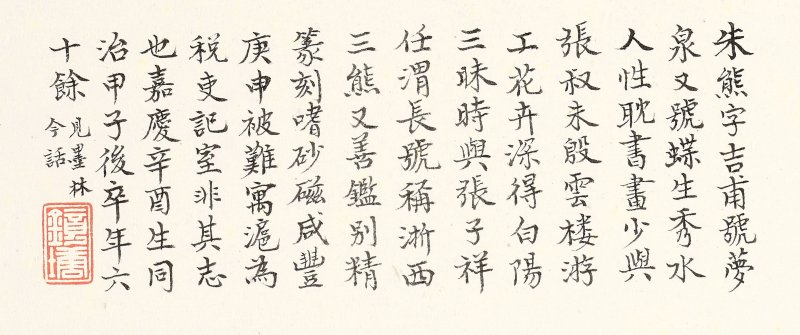 朱熊字吉甫號夢
泉又號蝶生秀水
人性耽書畫少與
張叔未殷雲楼游
工花卉深得白陽
三昧時與張子祥
任渭長號稱淅西
三熊又善鑑别精
篆刻嗜砂磁咸豐
庚申被難寓滬為
税吏記室非其志
也嘉慶辛酉生同
治甲子後卒年六
十餘
見墨林
今話